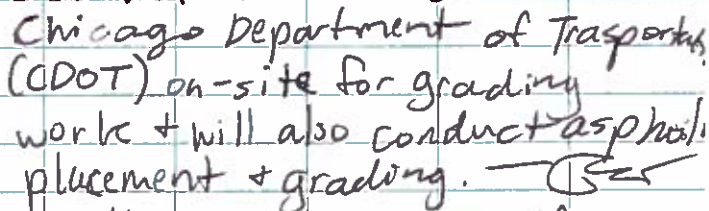 Chicago Department of Trasportat
(CDOT) on-site for grading
work + will also conduct asphalt
placement + grading.